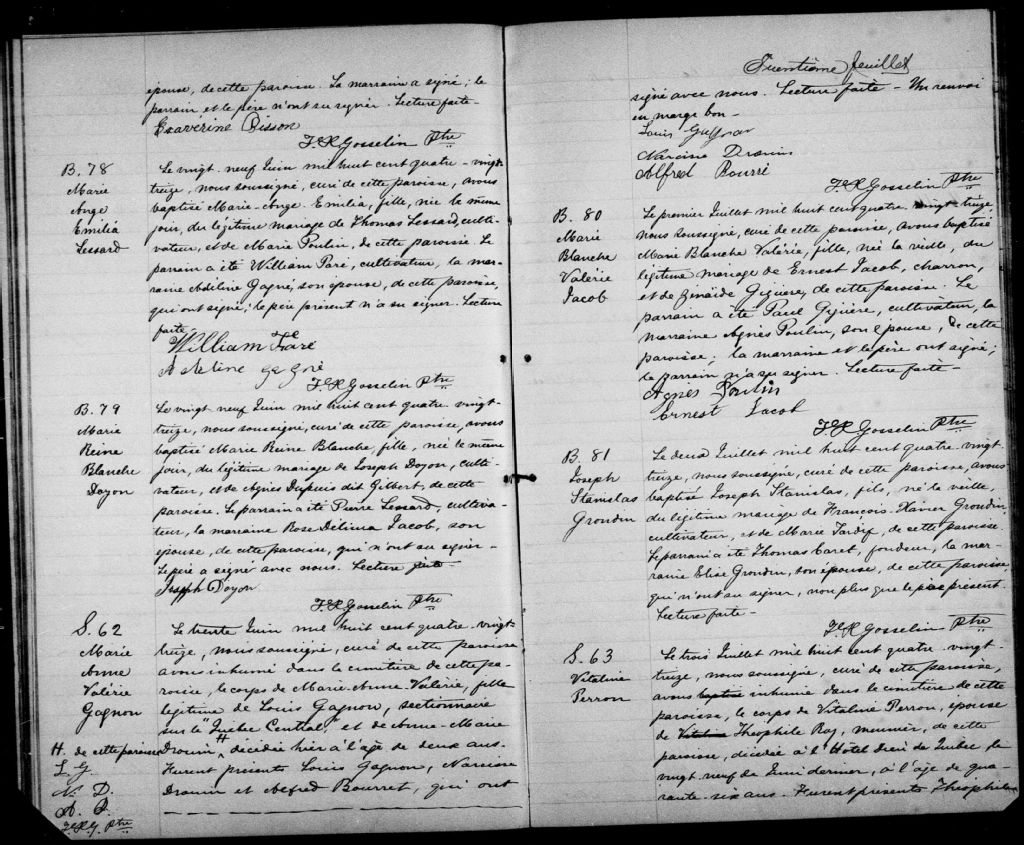 épouse, de cette paroisse. La marraine a signé; le
parrain et le père n'ont su signer. Lecture faite-
Exavérine Bisson
F.X. Gosselin Ptre
B. 78
Marie
Ange
Emilia
Lessard
Le vingt-neuf Juin mil huit cent quatre-vingt-
treize, nous soussigné, curé de cette paroisse, avons
baptisé Marie-Ange Emilia, fille, née le même
jour, du légitime mariage de Thomas Lessard, culti-
vateur, et de Marie Poulin, de cette paroisse. Le
parrain a été William Paré, cultivateur, la mar-
raine Adéline Gagné, son épouse, de cette paroisse,
qui ont signé; le père présent n'a su signer. Lecture
faite-
William Paré
Adeline Gagné
F.X. Gosselin Ptre
B. 79
Marie
Reine
Blanche
Doyon
Le vingt-neuf Juin mil huit cent quatre-vingt-
treize, nous soussigné, curé de cette paroisse, avons
baptisé Marie Reine Blanche, fille, née le même
jour, du légitime mariage de Joseph Doyon, culti-
vateur, et de Agnès Dupuis dit Gilbert, de cette
paroisse. Le parrain a été Pierre Lessard, cultiva-
teur, la marraine Rose Délima Jacob, son
épouse, de cette paroisse, qui n'ont su signer-
Le père a signé avec nous. Lecture faite-
Joseph Doyon
F.X. Gosselin Ptre
S. 62
Marie
Anne
Valérie
Gagnon
Le trente Juin mil huit cent quatre-vingt-
treize, nous soussigné, curé de cette paroisse
avons inhumé dans le cimetière de cette pa-
roisse, le corps de Marie-Anne Valérie, fille
légitime de Louis Gagnon, sectionnaire
sur le "Québec Central," et de Anne-Marie
Drouin H, décédée hier à l'âge de deux ans-
Furent présents Louis Gagnon, Narcisse
Drouin et Alfred Bourret, qui ont
H. de cette paroisse
L. G.
N. D.
A. B.
F.X.G. Ptre
Trentième feuillet
signé avec nous. Lecture faite- Un renvoi
en marge bon-
Louis Gagnon
Narcisse Drouin
Alfred Bourré
F.X. Gosselin Ptre
B. 80
Marie
Blanche
Valérie
Jacob
Le premier Juillet mil huit cent quatre-vingt-treize,
nous soussigné, curé de cette paroisse, avons baptisé
Marie Blanche Valérie, fille, née la veille, du
légitime mariage de Ernest Jacob, charron,
et de Zénaïde Giguère, de cette paroisse. Le
parrain a été Paul Giguère, cultivateur, la
marraine Agnès Poulin, son épouse, de cette
paroisse; la marraine et le père ont signé;
le parrain n'a su signer. Lecture faite-
Agnès Poulin
Ernest Jacob
F.X. Gosselin Ptre
B. 81
Joseph
Stanislas
Grondin
Le deux Juillet mil huit cent quatre-vingt-
treize, nous soussigné, curé de cette paroisse, avons
baptisé Joseph Stanislas, fils, né la veille,
du légitime mariage de François-Xavier Grondin,
cultivateur, et de Marie Tardif, de cette paroisse.
Le parrain a été Thomas Caret, fondeur, la mar-
raine Elise Grondin, son épouse, de cette paroisse,
qui n'ont su signer, non plus que le père présent.
Lecture faite-
F.X. Gosselin Ptre
S. 63
Vitaline
Perron
Le trois Juillet mil huit cent quatre-vingt-
treize, nous soussigné, curé de cette paroisse,
avons baptisé inhumé dans le cimetière de cette
paroisse, le corps de Vitaline Perron, épouse
de Vitaline Théophile Roy, meunier, de cette
paroisse, décédée à l'Hôtel Dieu de Québec, le
vingt-neuf de Juin dernier, à l'âge de qua-
rante-six ans. Furent présents Théophile